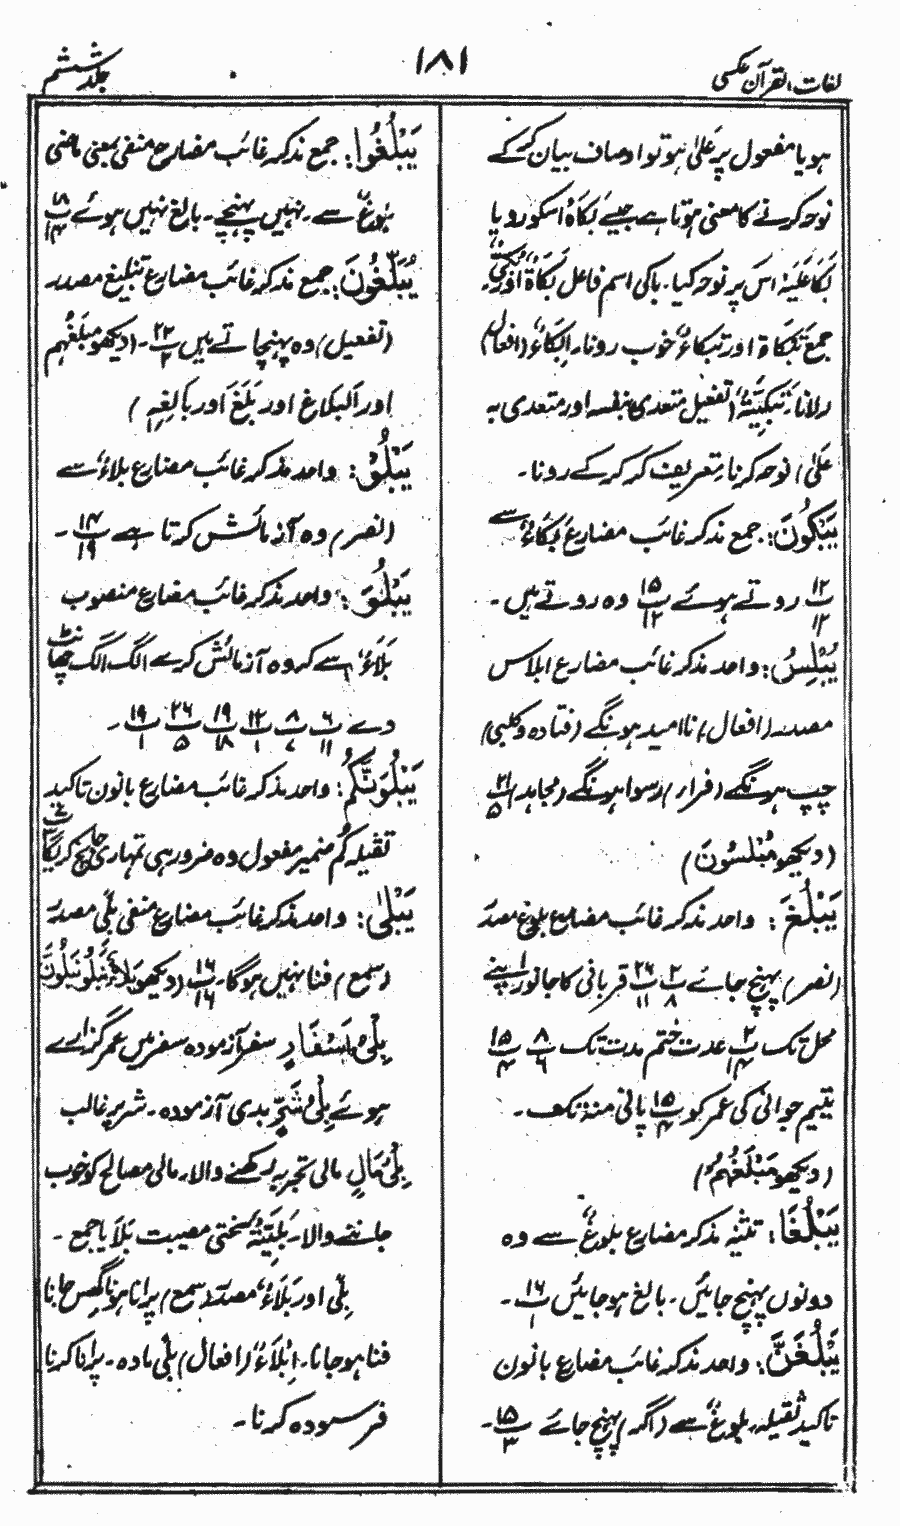 لغات القرآن عکسی
۱۸۱
جلد ششم
ہو یا مفعول پر عَلیٰ ہو تو اوصاف بیان کر کے
نوحہ کرنے کا معنی ہوتا ہے جیسے بَکَاہُ اسکو رویا
بَکَا عَلَیْہِ اس پر نوحہ کیا۔ باکی اسم فاعل بُکَاۃٌ اور بُکِیٌّ
جمع تَبْکَاۃ اور تَبْکَاءٌ خوب رونا۔ اِبْکَاءٌ (افعال)
رلانا۔ تَبْکِیَۃٌ (تفعیل متعدی بنفسہ اور متعدی بہ
عَلیٰ) نوحہ کرنا۔ تعریف کر کر کے رونا۔
یَبْکُوْنَ: جمع مذکر غائب مضارع بُکَاءٌ سے
۱۲/۱۲ روتے ہوئے ۱۵/۱۲ وہ روتے ہیں۔
یُبْلِسُ: واحد مذکر غائب مضارع ابلاس
مصدر (افعال) نا امید ہونگے (قتادہ و کلبی)
چپ ہونگے (فرار) رسوا ہونگے (مجاہد) ۲۱/۵
(دیکھو مُبْلِسُوْنَ)
یَبْلُغَ: واحد مذکر غائب مضارع بلوغ مصدر
(نصر) پہنچ جائے ۲/۸ ۲۶/۱۱ قربانی کا جانور اپنے
محل تک ۲/۱۴ عدت ختم مدت تک ۸/۶ ۱۵/۴
یتیم جوانی کی عمر کو ۱۵/۴ پانی منہ تک۔
(دیکھو مَبْلَغُہُمْ)
یَبْلُغَا: تثنیہ مذکر مضارع بلوغٌ سے وہ
دونوں پہنچ جائیں۔ بالغ ہو جائیں ۱۶/۱۔
یَبْلُغَنَّ: واحد مذکر غائب مضارع بانون
تاکید ثقیلہ، بلوغٌ سے (اگر) پہنچ جائے ۱۵/۳۔
یَبْلُغُوْا: جمع مذکر غائب مضارع منفی بمعنی ماضی
بلوغٌ سے۔ نہیں پہنچے۔ بالغ نہیں ہوئے ۱۸/۱۴
یُبَلِّغُوْنَ: جمع مذکر غائب مضارع تبلیغ مصدر
(تفعیل) وہ پہنچاتے ہیں ۲۲/۲۔ (دیکھو مَبْلَغُہُمْ
اور اَلْبَلَاغ اور بَلَغَ اور بَالِغِہِ)
یَبْلُوَ: واحد مذکر غائب مضارع بلاءٌ سے
(نصر) وہ آزمائش کرتا ہے ۱۴/۱۹۔
یَبْلُوَ: واحد مذکر غائب مضارع منصوب
بَلَاءٌ سے کہ وہ آزمائش کرے الگ الگ چھانٹ
دے ۶/۱۱ ۸/۷ ۱۲/۱ ۱۹/۱۸ ۲۶/۵ ۱۹/۱۔
یَبْلُوَنَّکُمُ: واحد مذکر غائب مضارع بانون تاکید
ثقیلہ کُمْ ضمیر مفعول وہ ضرور ہی تمہاری جانچ کریگا
یَبْلیٰ: واحد مذکر غائب مضارع منفی بِلیً مصدر
(سمع) فنا نہیں ہوگا۔ ۱۶/۱۶ (دیکھو بلاء، نَبْلُوَ، نَبْلُوَنَّ)
بِلْیُ اَسْفَارٍ سفر آزمودہ سفر میں عمر گزارے
ہوئے بِلْیُ شَرٍّ بدی آزمودہ۔ شریر غالب
بِلْیُ مَالٍ مالی تجربہ رکھنے والا، مالی مصالح کو خوب
جاننے والا۔ بَلِیَّۃٌ سختی مصیبت بَلَایا جمع۔
بِلًی اور بَلَاءٌ مصدر (سمع) پرانا ہونا گھس جانا
فنا ہو جانا۔ اِبْلَاءٌ (افعال) بِلًی مادہ۔ پرانا کرنا
فرسودہ کرنا۔